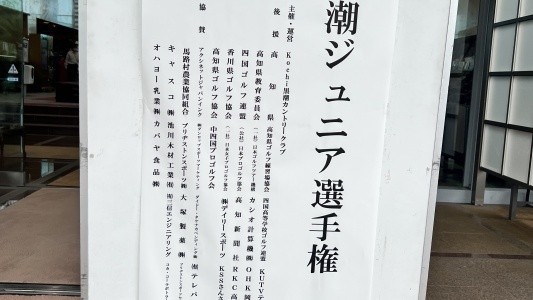 潮ジュニア選手権
主催・運営 Kochi黒潮カントリークラブ
後援 高知県 高知県ゴルフ練習場協会 四国高等学校ゴルフ連盟 KUTVテ
高知県教育委員会 カシオ計算機㈱ OHK岡
四国ゴルフ連盟 高知新聞社 RKC高
香川県ゴルフ協会 ㈱デイリースポーツ KSSさんさ
高知県ゴルフ協会 中四国プロゴルフ会
協賛 アクシネットジャパンインク
馬路村農業協同組合 ブリヂストンスポーツ㈱ 大塚製薬㈱ ㈲テレパ
キャスコ㈱ 池川木材工業㈲ ㈲三信エンジニアリング
オハヨー乳業㈱ カバヤ食品㈱